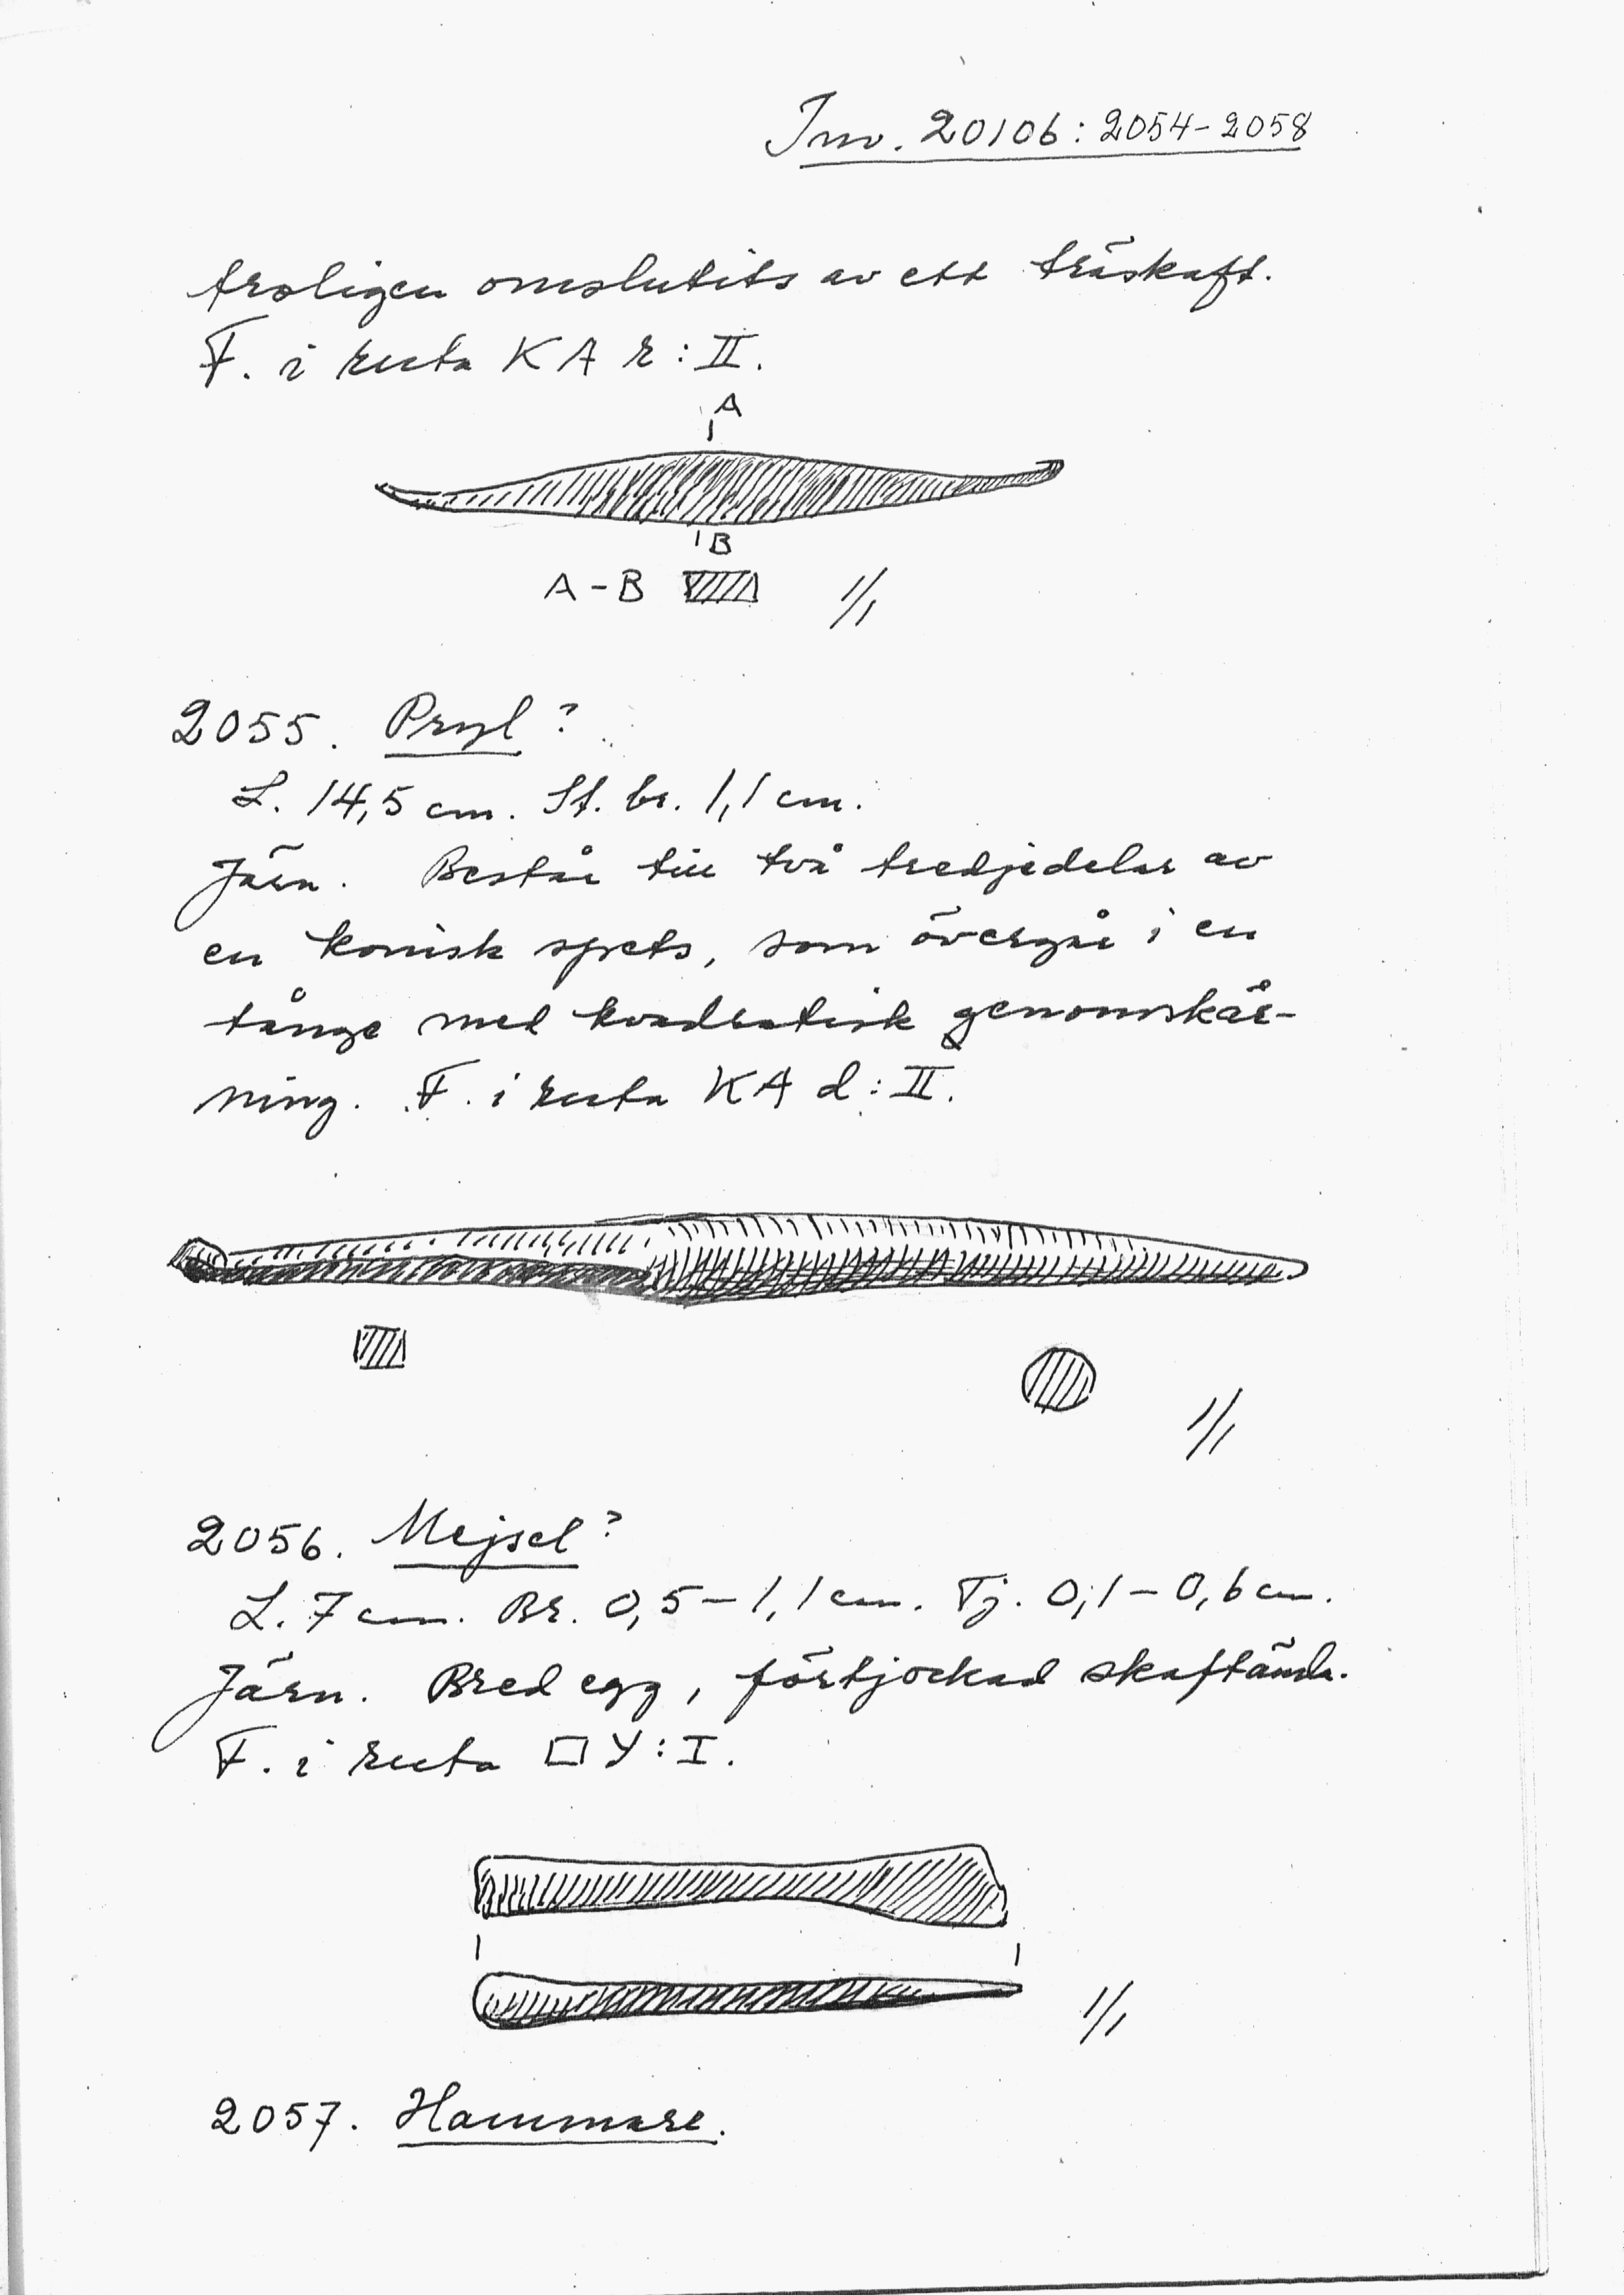 Inv. 20106: 2054-2058
troligen omslutits av ett träskaft.
F. i ruta K A r : II.
A
B
A - B 1/1
2055. Pryl?
L. 14,5 cm. St. br. 1,1 cm.
Järn. Består till två tredjedelar av
en konisk spets, som övergår i en
tånge med kvadratisk genomskär-
ning. F. i ruta K A d : II.
1/1
2056. Mejsel?
L. 7 cm. Br. 0,5 - 1,1 cm. Tj. 0,1 - 0,6 cm.
Järn. Bred egg, förtjockad skaftända.
F. i ruta □ Y : I.
1/1
2057. Hammare.